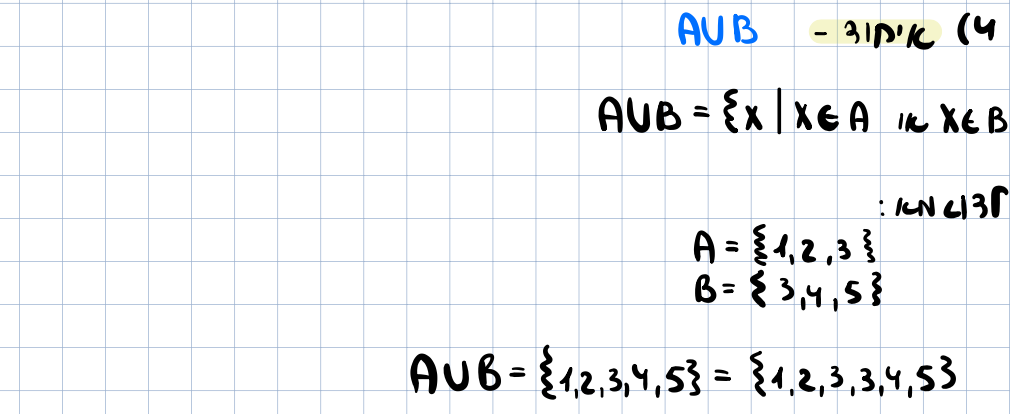 4) איחוד - A∪B
A∪B = {x | x∈A או x∈B
דוגמא:
A = {1,2,3}
B = {3,4,5}
A∪B = {1,2,3,4,5} = {1,2,3,3,4,5}